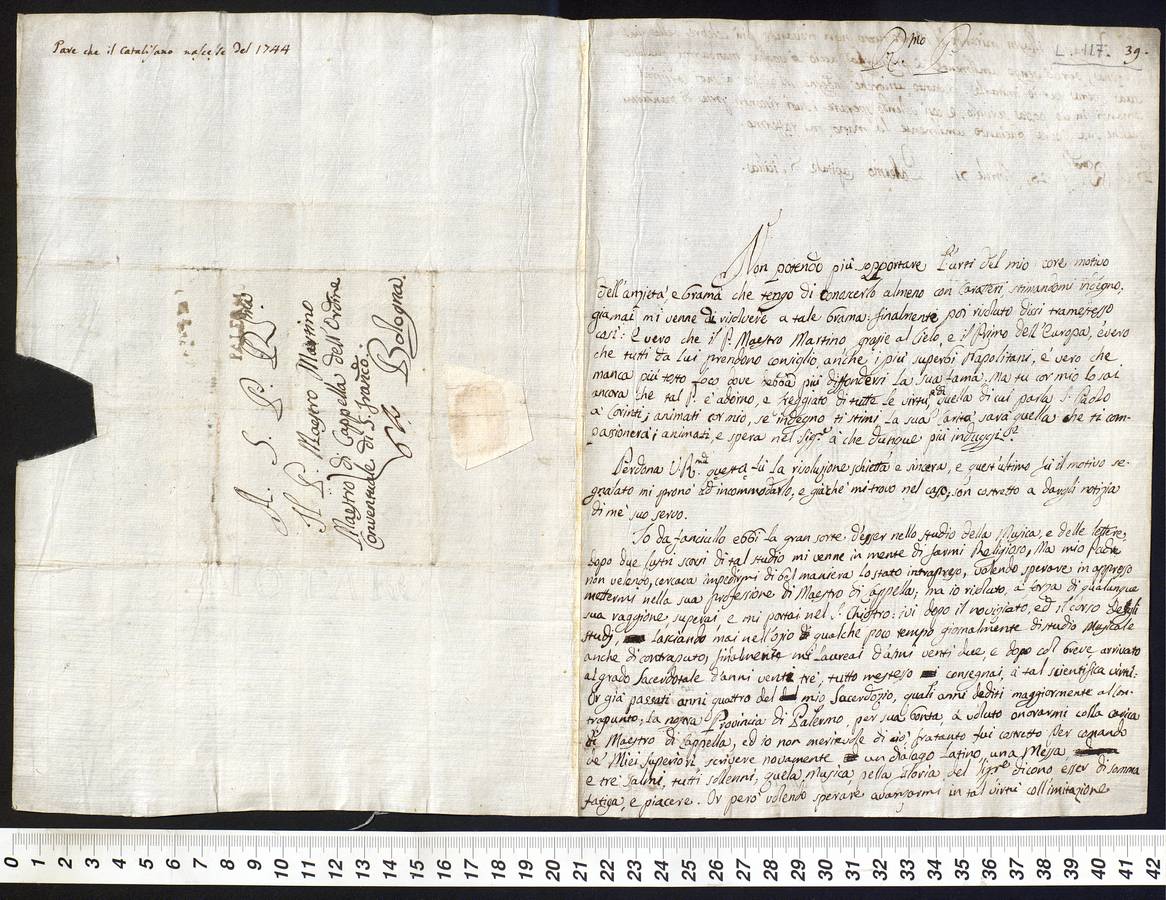 Pare che il Catalisano nascesse del 1744
A. S. P. Rma.
Il P. Maestro Martino
Maestro di Cappella dell'Ordine
Conventuale di S. Franco.
Bologna.
L. 117. 39.
Rmo P.
Non potendo più sopportare l'urti del mio core motivo
dell'anzietà, e brama che tengo di conoscerlo almeno con Caratteri stimandomi indegno,
giamai mi venne di risolvere a tale brama: finalmente poi risoluto dissi tra me stesso
così: È vero che il P. Maestro Martino, grazie al Cielo, e il Primo dell'Europa, è vero
che tutti da lui prendono consiglio anche i più superbi Napolitani, è vero che
manca più tosto foco dove debba più diffondersi la sua fama. Ma tu cor mio lo sai
ancora che tal P. è adorno, e freggiato di tutte le virtù, e di quella di cui parla S. Paolo
a' Corinti; animati cor mio, se indegno ti stimi la sua Carità sarà quella che ti com-
passionerà; animati, e spera nel Sigre. à che dunque più induggi?
Perdona V. R. questa fù la risoluzione schietta e sincera, e quest'ultimo fù il motivo se-
gnalato mi spronò ad incommodarlo, e giache mi trovo nel caso, son costretto a dargli notizia
di me suo servo.
Io da fanciullo ebbi la gran sorte d'esser nello studio della Musica, e delle lettere,
dopo due lustri scorsi di tal studio mi venne in mente di farmi Religioso, Ma mio Padre
non volendo, cercava impedirmi di tal maniera lo stato intrapreso, volendo sperare in appresso
mettermi nella sua professione di Maestro di Cappella; ma io risoluto, a forza di qualunque
sua raggione superai, e mi portai nel S. Chiostro: ivi dopo il noviziato, ed il corso degli
studj, lasciando mai nell'ozio di qualche poco tempo giornalmente di studio Musicale
anche di contraputo, finalmente mi Laureai d'anni venti due, e dopo così breve arrivato
al grado Sacerdotale d'anni venti tre, tutto me stesso consegnai, a tal scientifica virtù:
Or già passati anni quattro del mio Sacerdozio, quali anni dediti maggiormente al Con-
trapunto; la nostra Provincia di Palermo, per sua bontà, à voluto onorarmi colla carica
di Maestro di Cappella, ed io non meritevole di ciò fratanto fui costretto per comando
de' Miei Superiori scrivere novamente un dialago Latino, una Messa,
e tre Salmi, tutti sollenni, quela Musica pella Gloria del Sigre dicono esser di somma
fatiga, e piacere. Or però volendo sperare avanzarmi in tal virtù coll'imitazione